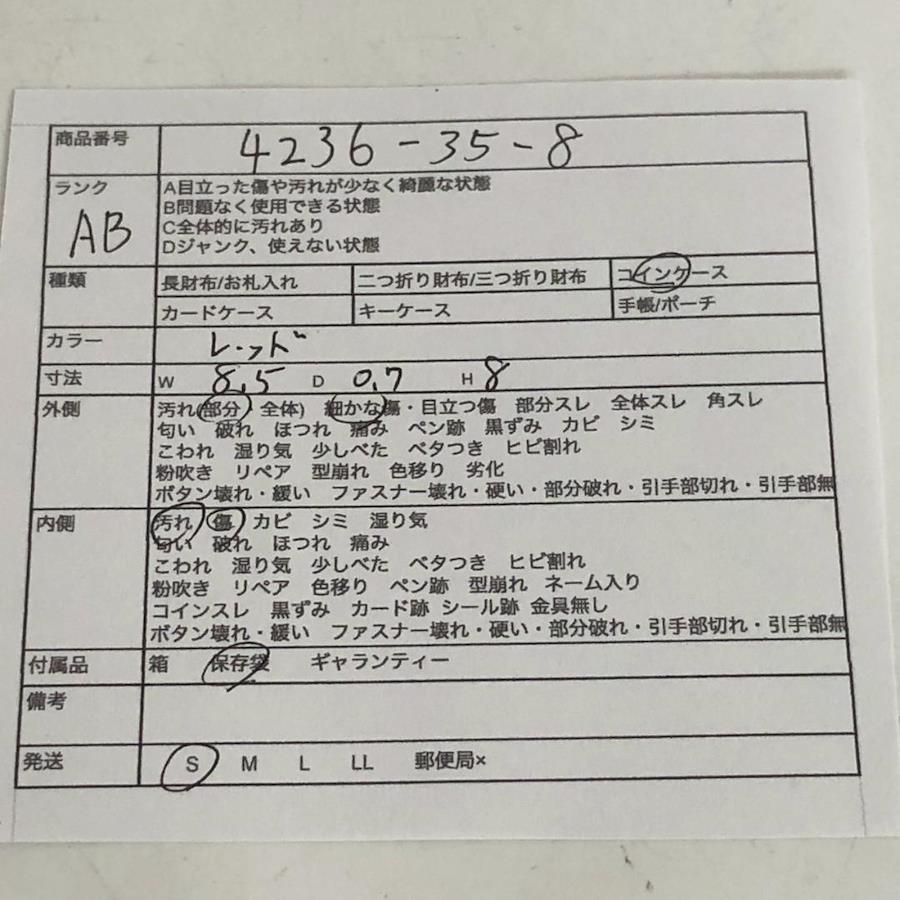 商品番号 4236-35-8
ランク A目立った傷や汚れが少なく綺麗な状態
B問題なく使用できる状態
AB C全体的に汚れあり
Dジャンク、使えない状態
種類 長財布/お札入れ 二つ折り財布/三つ折り財布 コインケース
カードケース キーケース 手帳/ポーチ
カラー レッド
寸法 W 8.5 D 0.7 H 8
外側 汚れ(部分・全体) 細かな傷・目立つ傷 部分スレ 全体スレ 角スレ
匂い 破れ ほつれ 痛み ペン跡 黒ずみ カビ シミ
こわれ 湿り気 少しべた ベタつき ヒビ割れ
粉吹き リペア 型崩れ 色移り 劣化
ボタン壊れ・緩い ファスナー壊れ・硬い・部分破れ・引手部切れ・引手部無
内側 汚れ 傷 カビ シミ 湿り気
匂い 破れ ほつれ 痛み
こわれ 湿り気 少しべた ベタつき ヒビ割れ
粉吹き リペア 色移り ペン跡 型崩れ ネーム入り
コインスレ 黒ずみ カード跡 シール跡 金具無し
ボタン壊れ・緩い ファスナー壊れ・硬い・部分破れ・引手部切れ・引手部無
付属品 箱 保存袋 ギャランティー
備考
発送 S M L LL 郵便局×